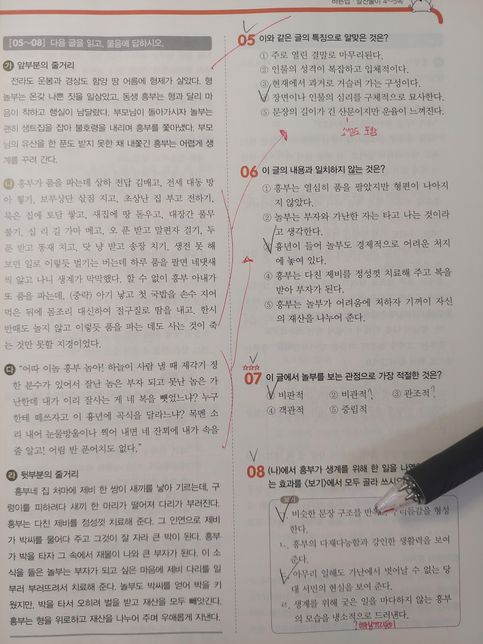 [05~08] 다음 글을 읽고, 물음에 답하시오.
가 앞부분의 줄거리
전라도 운봉과 경상도 함양 땅 어름에 형제가 살았다. 형
놀부는 온갖 나쁜 짓을 일삼았고, 동생 흥부는 형과 달리 마
음이 착하고 행실이 남달랐다. 부모님이 돌아가시자 놀부는
괜히 생트집을 잡아 불호령을 내리며 흥부를 쫓아냈다. 부모
님의 유산을 한 푼도 받지 못한 채 내쫓긴 흥부는 어렵게 생
계를 꾸려 간다.
나 흥부가 품을 파는데 상하 전답 김매고, 전세 대동 방
아 찧기, 보부상단 삯짐 지고, 초상난 집 부고 전하기,
묵은 집에 토담 쌓고, 새집에 땅 돋우고, 대장간 풀무
불기, 십 리 길 가마 메고, 오 푼 받고 말편자 걸기, 두
푼 받고 똥재 치고, 닷 냥 받고 송장 치기, 생전 못 해
보던 일로 이렇듯 벌기는 버는데 하루 품을 팔면 네댓새
씩 앓고 나니 생계가 막막했다. 할 수 없이 흥부 아내가
또 품을 파는데, (중략) 아기 낳고 첫 국밥을 손수 지어
먹은 뒤에 몸조리 대신하여 절구질로 땀을 내고, 한시
반때도 놀지 않고 이렇듯 품을 파는 데도 사는 것이 죽
는 것만 못할 지경이었다.
다 “어따 이놈 흥부 놈아! 하늘이 사람 낼 때 제각기 정
한 분수가 있어서 잘난 놈은 부자 되고 못난 놈은 가
난한데 내가 이리 잘사는 게 네 복을 뺏었느냐? 누구
한테 떼쓰자고 이 흉년에 곡식을 달라느냐? 목멘 소
리 내어 눈물방울이나 찍어 내면 네 잔꾀에 내가 속을
줄 알고! 어림 반 푼어치도 없다.”
라 뒷부분의 줄거리
흥부네 집 처마에 제비 한 쌍이 새끼를 낳아 기르는데, 구
렁이를 피하려다 새끼 한 마리가 떨어져 다리가 부러진다.
흥부는 다친 제비를 정성껏 치료해 준다. 그 인연으로 제비
가 박씨를 물어다 주고 그것이 잘 자라 큰 박이 된다. 흥부
가 박을 타자 그 속에서 재물이 나와 큰 부자가 된다. 이 소
식을 들은 놀부는 부자가 되고 싶은 마음에 제비 다리를 일
부러 부러뜨려서 치료해 준다. 놀부도 박씨를 얻어 박을 키
웠지만, 박을 타서 오히려 벌을 받고 재산을 모두 빼앗긴다.
흥부는 형을 위로하고 재산을 나누어 주며 우애롭게 지낸다.
05 이와 같은 글의 특징으로 알맞은 것은?
① 주로 열린 결말로 마무리된다.
② 인물의 성격이 복잡하고 입체적이다.
③ 현재에서 과거로 거슬러 가는 구성이다.
④ 장면이나 인물의 심리를 구체적으로 묘사한다.
⑤ 문장의 길이가 긴 산문이지만 운율이 느껴진다.
06 이 글의 내용과 일치하지 않는 것은?
① 흥부는 열심히 품을 팔았지만 형편이 나아지
지 않았다.
② 놀부는 부자와 가난한 자는 타고 나는 것이라
고 생각한다.
③ 흉년이 들어 놀부도 경제적으로 어려운 처지
에 놓여 있다.
④ 흥부는 다친 제비를 정성껏 치료해 주고 복을
받아 부자가 된다.
⑤ 흥부는 놀부가 어려움에 처하자 기꺼이 자신
의 재산을 나누어 준다.
07 이 글에서 놀부를 보는 관점으로 가장 적절한 것은?
① 비판적 ② 비관적 ③ 관조적
④ 객관적 ⑤ 중립적
08 (나)에서 흥부가 생계를 위해 한 일을 나열
는 효과를 <보기>에서 모두 골라 쓰시
비슷한 문장 구조를 리듬감을 형성
한다.
ㄴ. 흥부의 다재다능함과 강인한 생활력을 보여
준다.
아무리 일해도 가난에서 벗어날 수 없는 당
대 서민의 현실을 보여 준다.
ㄹ. 생계를 위해 궂은 일을 마다하지 않는 흥부
의 모습을 냉소적으로 드러낸다.